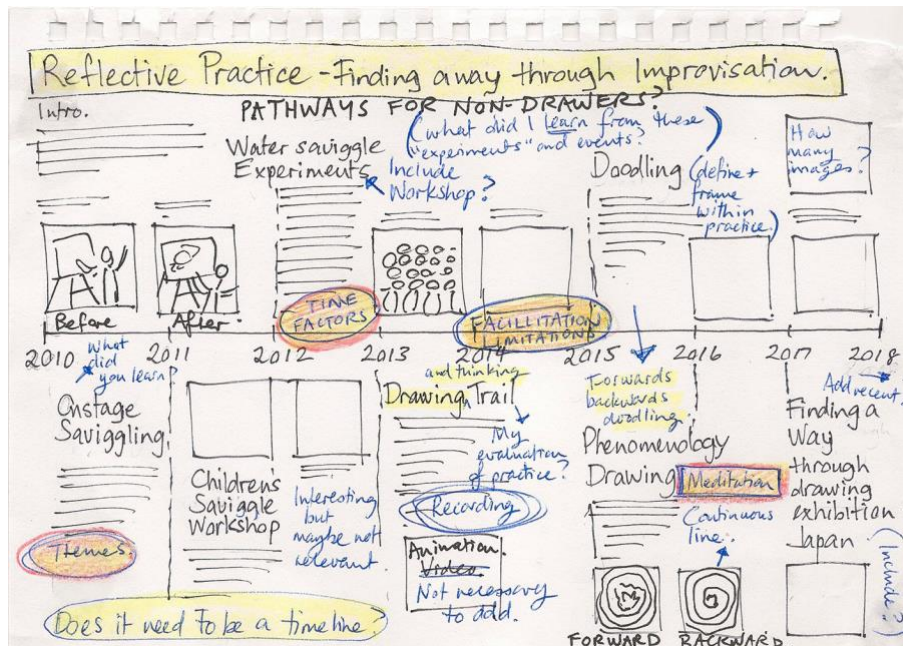 Reflective Practice - Finding a way through Improvisation.
Intro.
PATHWAYS FOR NON-DRAWERS?
(what did I learn from these
"experiments" and events?)
Water saviggle
Experiments
Include
Workshop?
Doodling
(define +
frame
within
practice.)
How
many
images?
Before
After
TIME
FACTORS
FACILLITATION
LIMITATIONS
2010
2011
2012
2013
2014
2015
2016
2017
2018
What
did
you learn?
Onstage
Saviggling
Themes
Children's
Saviggle
Workshop
Interesting
but
maybe not
relevant.
and thinking
Drawing Trail
My
evaluation
of practice?
Recording
Animation.
Video
Not necessary
to add.
Forwards
backwards
doodling.
Phenomenology
Drawing
Meditation
Continuous
line.
FORWARD
BACKWARD
Add recent.
Finding a
Way
through
drawing
exhibition
Japan
(Include?)
Does it need to be a timeline?